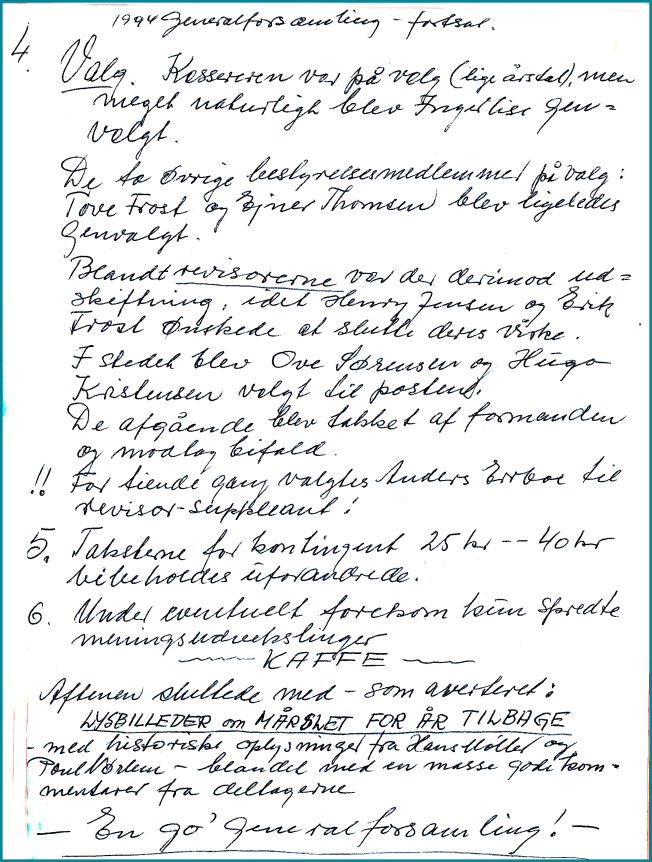 1994 Generalforsamling - fortsat.
4. Valg. Kassereren var på valg (lige årstal), men
meget naturligt blev Ingerlise gen=
valgt.
De to øvrige bestyrelsesmedlemmer på valg:
Tove Frost og Ejner Thomsen blev ligeledes
genvalgt.
Blandt revisorerne var der derimod ud=
skiftning, idet Henry Jensen og Erik
Frost ønskede at slutte deres virke.
I stedet blev Ove Sørensen og Hugo
Kristensen valgt til posten.
De afgående blev takket af formanden
og modtog bifald.
!! For tiende gang valgtes Anders Errboe til
revisor-suppleant!
5. Taksterne for kontingent 25 kr -- 40 kr
bibeholdes uforandrede.
6. Under eventuelt forekom kun spredte
meningsudvekslinger
KAFFE
Aftenen sluttede med - som averteret:
LYSBILLEDER om MÅRSLET FOR ÅR TILBAGE
- med historiske oplysninger fra Hans Møller og
Poul - blandet med en masse gode kom=
mentarer fra deltagerne
- En go' generalforsamling! -